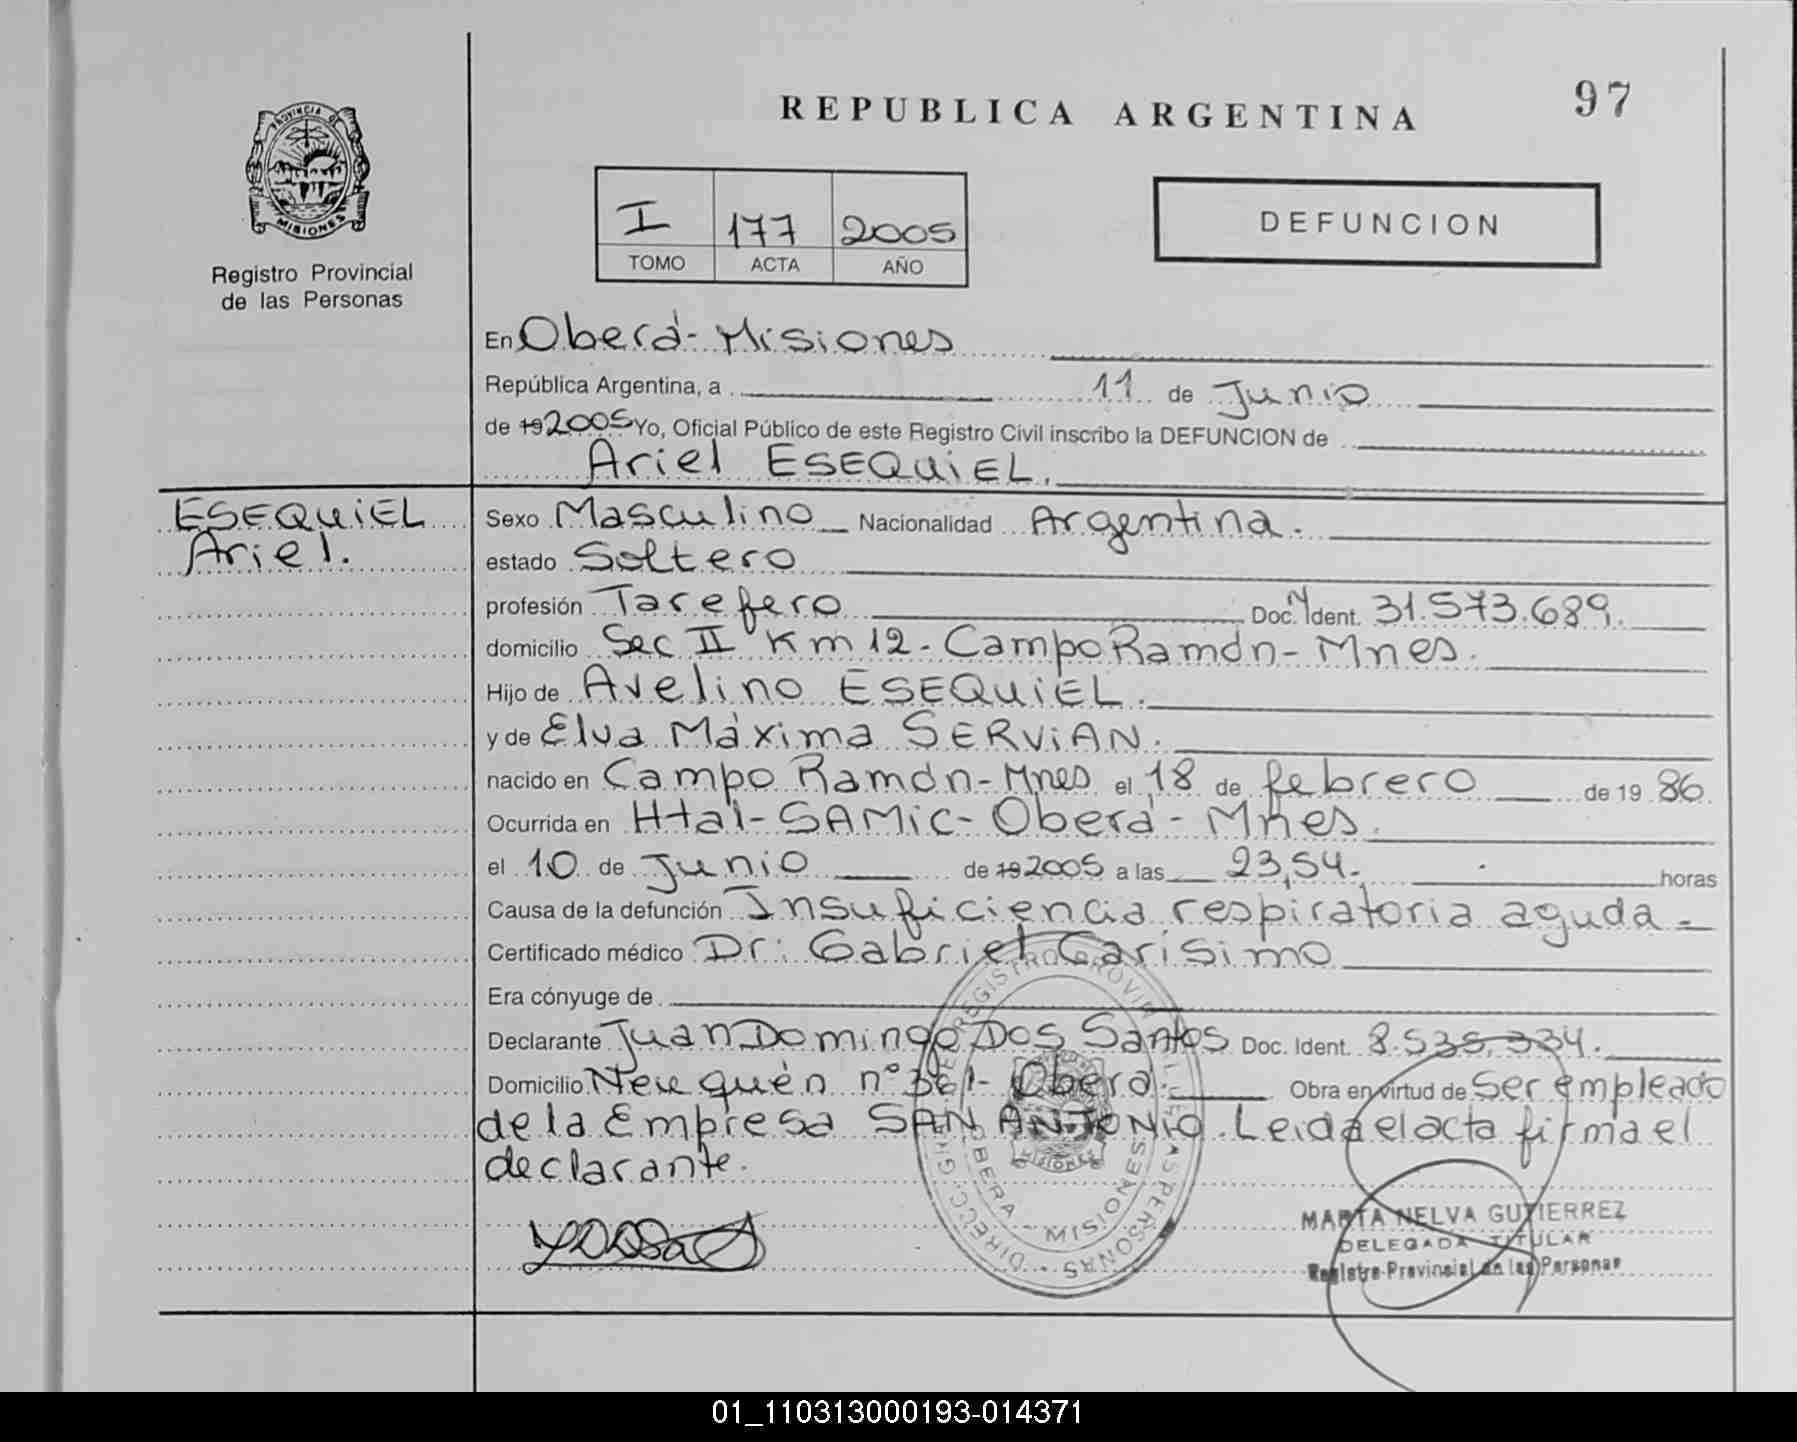 97
REPUBLICA ARGENTINA
PROVINCIA DE
MISIONES
Registro Provincial
de las Personas
I 177 2005
TOMO ACTA AÑO
DEFUNCION
En Oberá - Misiones
República Argentina, a 11 de Junio
de 19 2005 Yo, Oficial Público de este Registro Civil inscribo la DEFUNCION de
Ariel ESEQUiEL.
ESEQUiEL
Ariel.
Sexo Masculino Nacionalidad Argentina.
estado Soltero
profesión Tarefero Doc. N Ident. 31.573.689.
domicilio Sec II Km 12 - Campo Ramón - Mnes.
Hijo de Avelino ESEQUiEL.
y de Elva Máxima SERViAN.
nacido en Campo Ramón - Mnes el 18 de febrero de 19 86.
Ocurrida en Htal - SAMiC - Oberá - Mnes.
el 10 de Junio de 19 2005 a las 23,54. horas
Causa de la defunción Insuficiencia respiratoria aguda -
Certificado médico Dr: Gabriel Carisimo
Era cónyuge de
Declarante Juan Domingo Dos Santos Doc. Ident. 8.535.334.
Domicilio Neuquén n° 361 - Oberá. Obra en virtud de Ser empleado
de la Empresa SAN ANTONiO. Leida el acta firma el
declarante.
OBERA - MISIONES
MISIONES
MARTA NELVA GUTIERREZ
DELEGADA TITULAR
Registro Provincial de las Personas
01_110313000193-014371